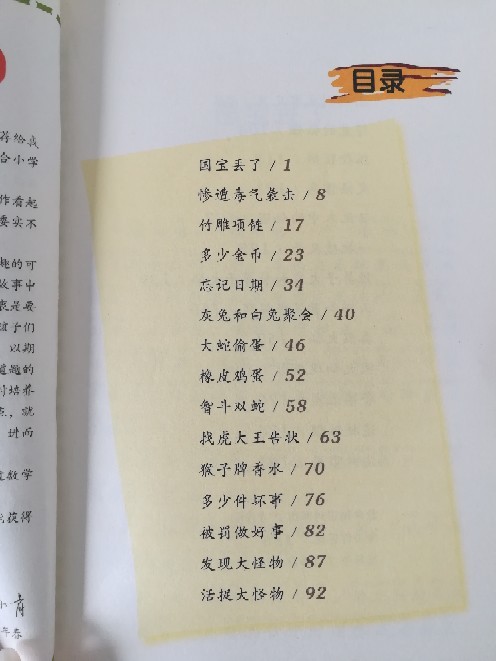 荐给我
合小学
作看起
要实不
趣的可
故事中
衷是要
孩子们
以期
道题的
时培养
点，就
进而
数学
获得
目录
国宝丢了 / 1
惨遭毒气袭击 / 8
竹雕项链 / 17
多少金币 / 23
忘记日期 / 34
灰兔和白兔聚会 / 40
大蛇偷蛋 / 46
橡皮鸡蛋 / 52
智斗双蛇 / 58
找虎大王告状 / 63
猴子牌香水 / 70
多少件坏事 / 76
被罚做好事 / 82
发现大怪物 / 87
活捉大怪物 / 92